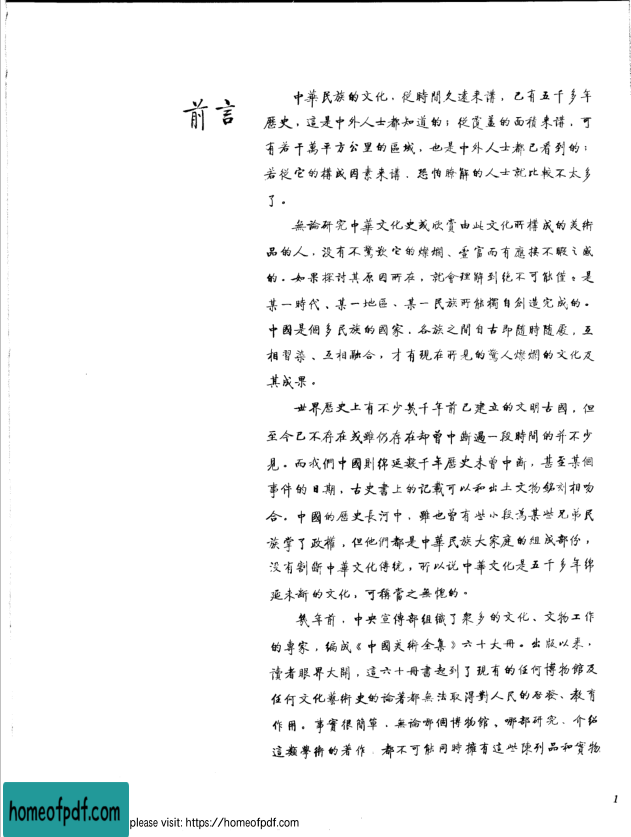 前言
中華民族的文化，從時間久遠來講，已有五千多年
歷史，這是中外人士都知道的；從覆蓋的面積來講，可
有若干萬平方公里的區域，也是中外人士都已看到的；
若從它的構成因素來講，恐怕瞭解的人士就比較不太多
了。
無論研究中華文化史或欣賞由此文化所構成的美術
品的人，沒有不驚歎它的燦爛、豐富而有應接不暇之感
的。如果探討其原因所在，就會理解到絕不可能僅僅是
某一時代、某一地區、某一民族所能獨自創造完成的。
中國是個多民族的國家，各族之間自古即隨時隨處，互
相習染、互相融合，才有現在所見的驚人燦爛的文化及
其成果。
世界歷史上有不少幾千年前已建立的文明古國，但
至今已不存在或雖仍存在却曾中斷過一段時間的并不少
見。而我們中國則綿延數千年歷史未曾中斷，甚至某個
事件的日期，古史書上的記載可以和出土文物銘刻相吻
合。中國的歷史長河中，雖也曾有些小段為某些兄弟民
族掌了政權，但他們都是中華民族大家庭的組成部份，
沒有割斷中華文化傳統，所以說中華文化是五千多年綿
延未斷的文化，可稱當之無愧的。
幾年前，中央宣傳部組織了眾多的文化、文物工作
的專家，編成《中國美術全集》六十大冊。出版以來，
讀者眼界大開，這六十冊書起到了現有的任何博物館及
任何文化藝術史的論著都無法取得對人民的啓發、教育
作用。事實很簡單，無論哪個博物館、哪部研究、介紹
這類學術的著作，都不可能同時擁有這些陳列品和實物
1
homeofpdf.com
please visit: https://homeofpdf.com